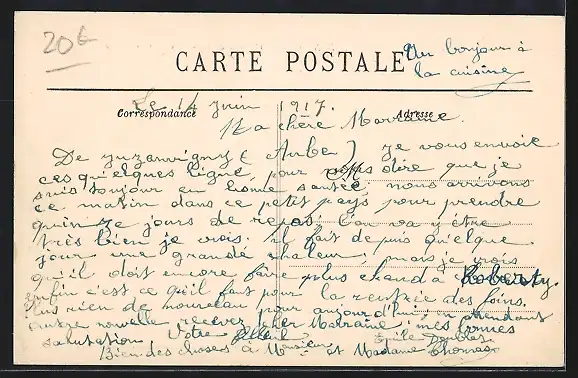 20€
CARTE POSTALE
Un bonjour à
la cuisine
Correspondance
Adresse
Le 14 juin 1917.
Ma chère Marraine.
De (Aube) je vous envoie
ces quelques ligne, pour vous dire que je
suis toujour en bonne santée, nous arrivons
ce matin dans ce petit pays pour prendre
quinze jours de repos. L'on va y être
très bien je crois. il fait depuis quelque
jour une grande chaleur, mais je crois
qu'il doit encore faire plus chaud à
enfin c'est ce qu'il faut pour la rentrée des foins.
plus rien de nouveau pour aujourd'hui, en attendant
autre nouvelle recevez chère Marraine, mes bonnes
salutation Votre
Bien des choses à Monsieur et Madame Thomas